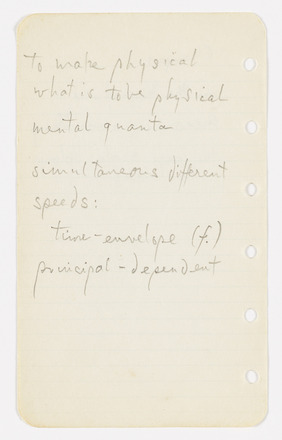 to make physical
what is to be physical
mental quanta
simultaneous different
speeds:
time-envelope (f.)
principal-dependent